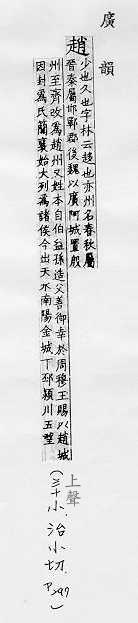 廣韻
趙
少也久也字林云趍也亦州名春秋屬
晉秦屬邯鄲郡後魏以廣阿城置殷
州至齊改為趙州又姓本自伯益孫造父善御幸於周穆王賜以趙城
因封為氏簡襄始大列為諸侯今出天水南陽金城下邳潁川五望
上聲
(三十小.治小切. P297)